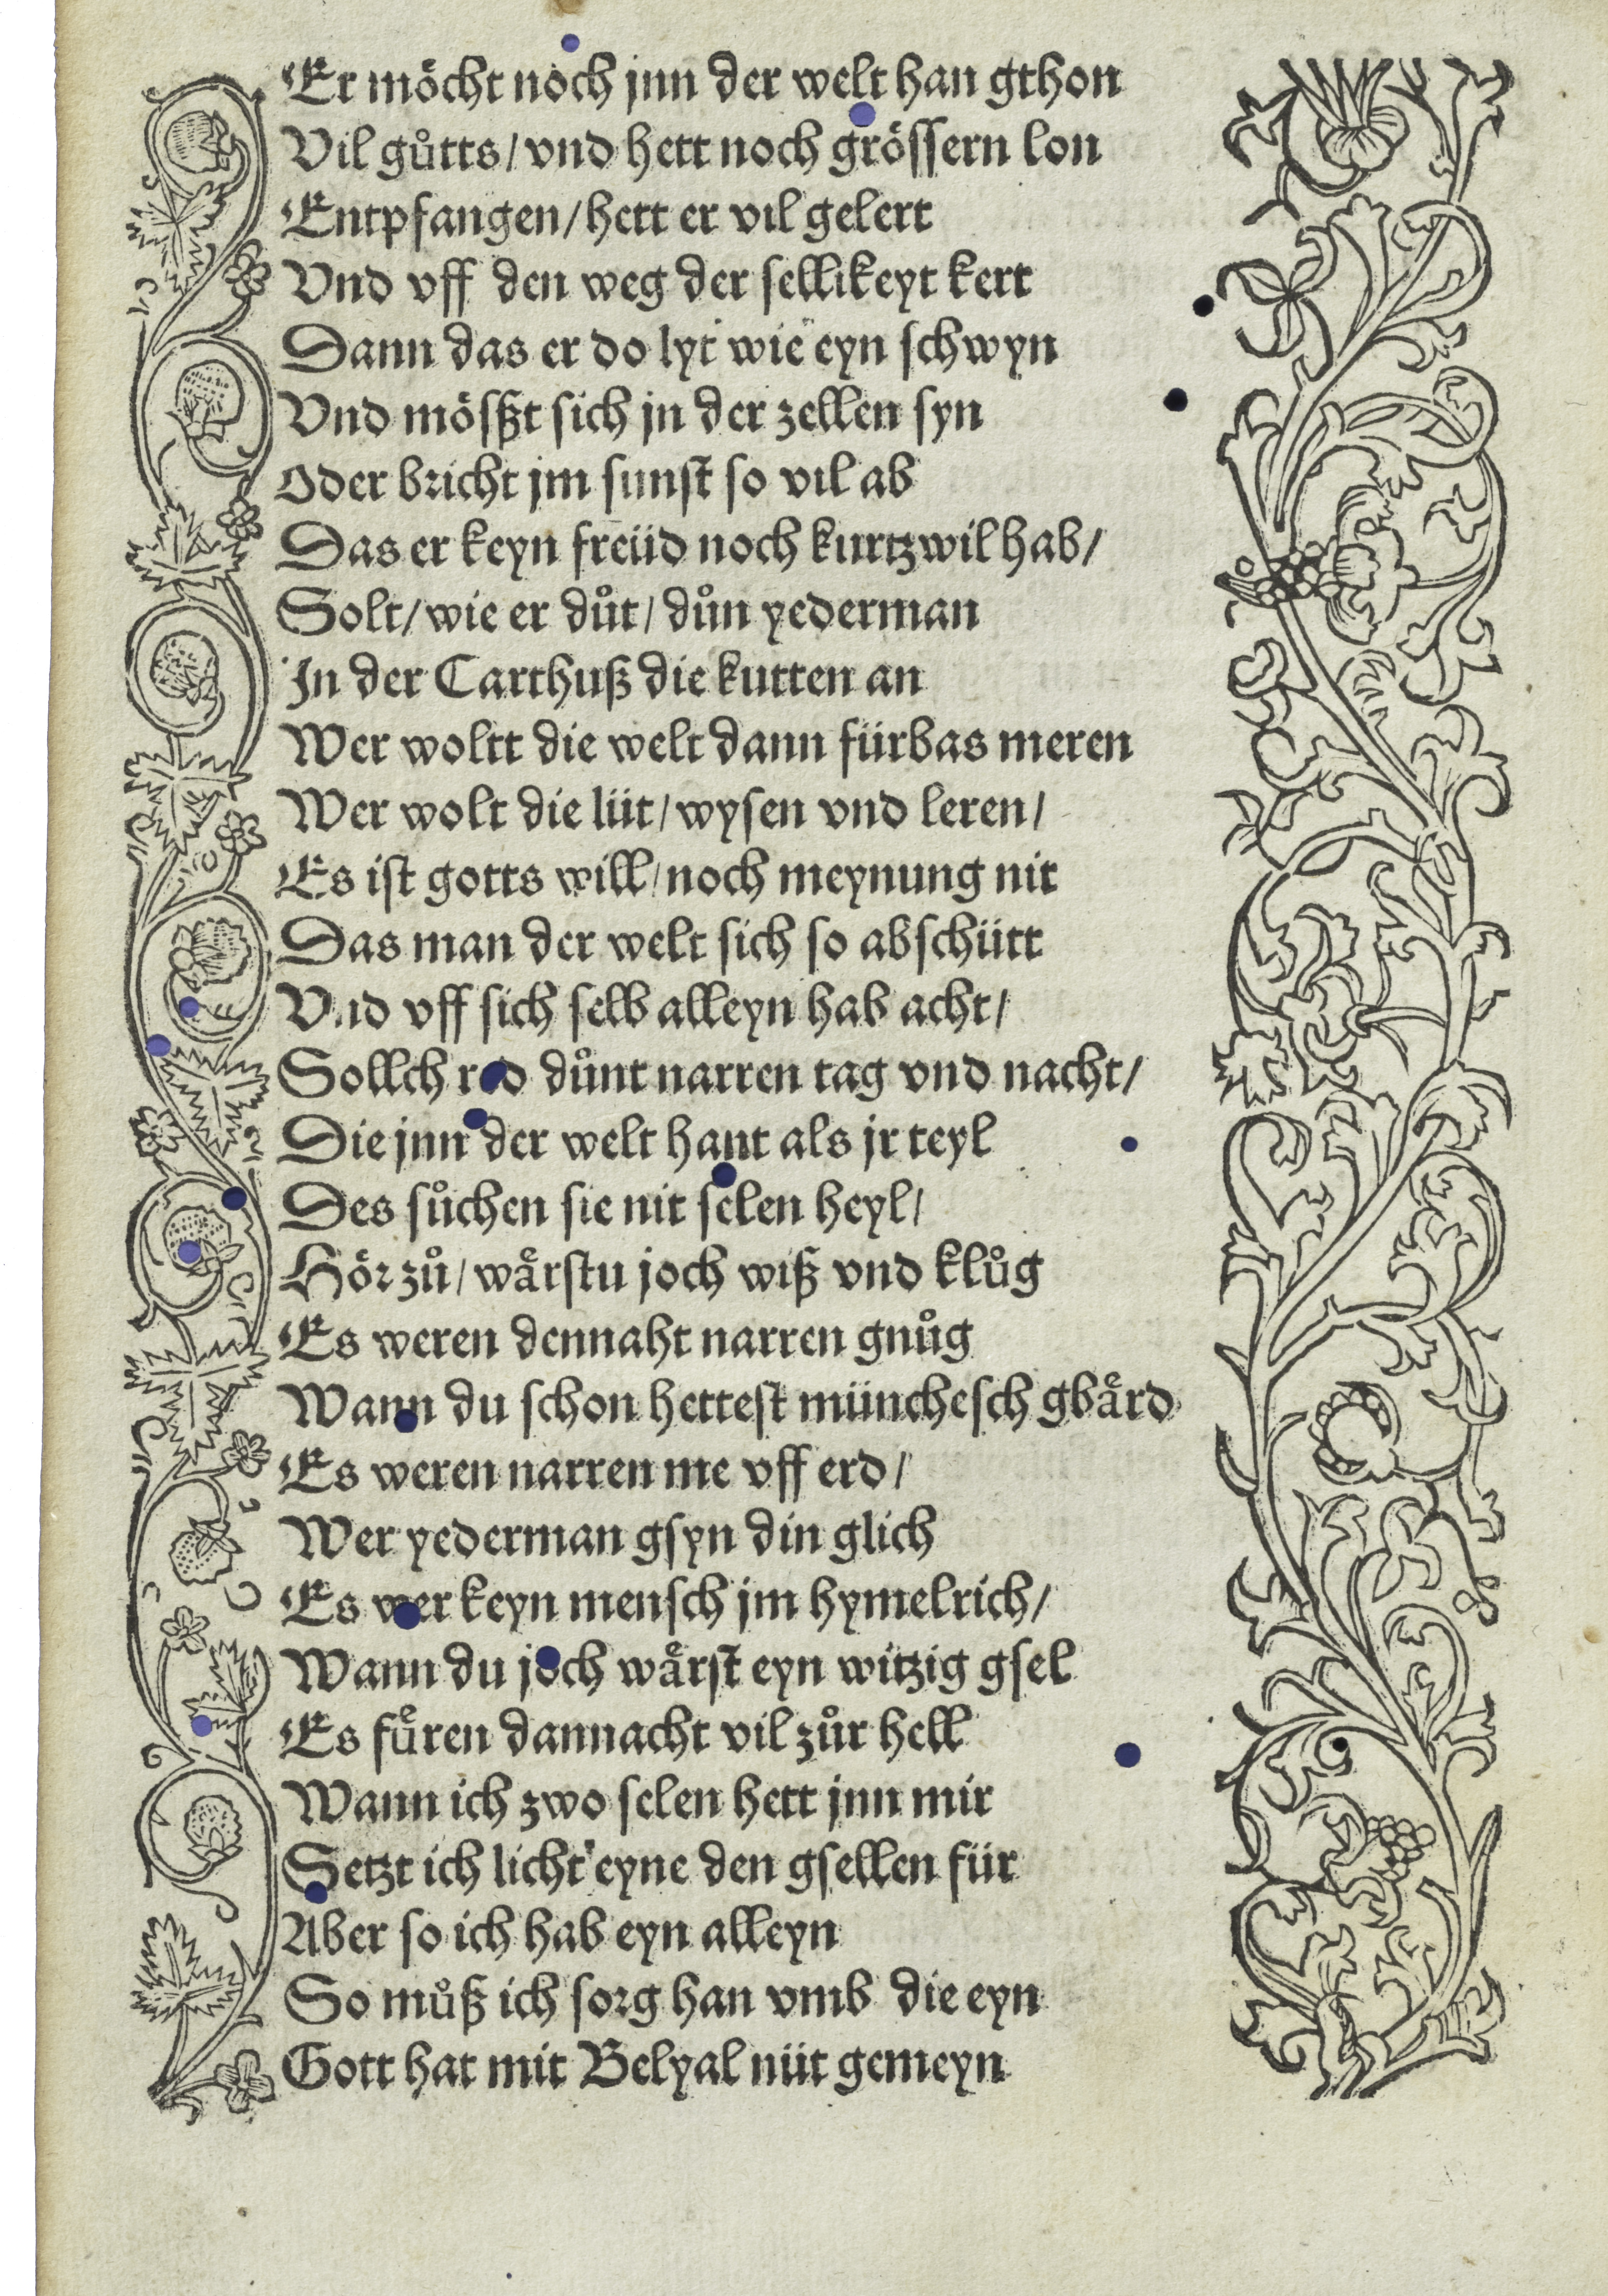 Er möcht noch jnn der welt han gthon
Vil gůtts / vnd hett noch grössern lon
Entpfangen / hett er vil gelert
Vnd vff den weg der sellikeyt kert
Dann das er do lyt wie eyn schwyn
Vnd mösßt sich jn der zellen syn
Oder bricht jm sunst so vil ab
Das er keyn freüd noch kurtzwil hab /
Solt / wie er důt / důn yederman
In der Carthuß die kutten an
Wer woltt die welt dann fürbas meren
Wer wolt die lüt / wysen vnd leren /
Es ist gotts will / noch meynung nit
Das man der welt sich so abschütt
Vnd vff sich selb alleyn hab acht /
Sollch red důnt narren tag vnd nacht /
Die jnn der welt hant als jr teyl
Des sůchen sie nit selen heyl /
Hör zů / wårstu joch wiß vnd klůg
Es weren dennaht narren gnůg
Wann du schon hettest münchesch gbård
Es weren narren me vff erd /
Wer yederman gsyn din glich
Es wer keyn mensch jm hymelrich /
Wann du joch wårst eyn witzig gsel
Es fůren dannacht vil zůr hell
Wann ich zwo selen hett jnn mir
Setzt ich licht eyne den gsellen für
Aber so ich hab eyn alleyn
So můß ich sorg han vmb die eyn
Gott hat mit Belyal nüt gemeyn